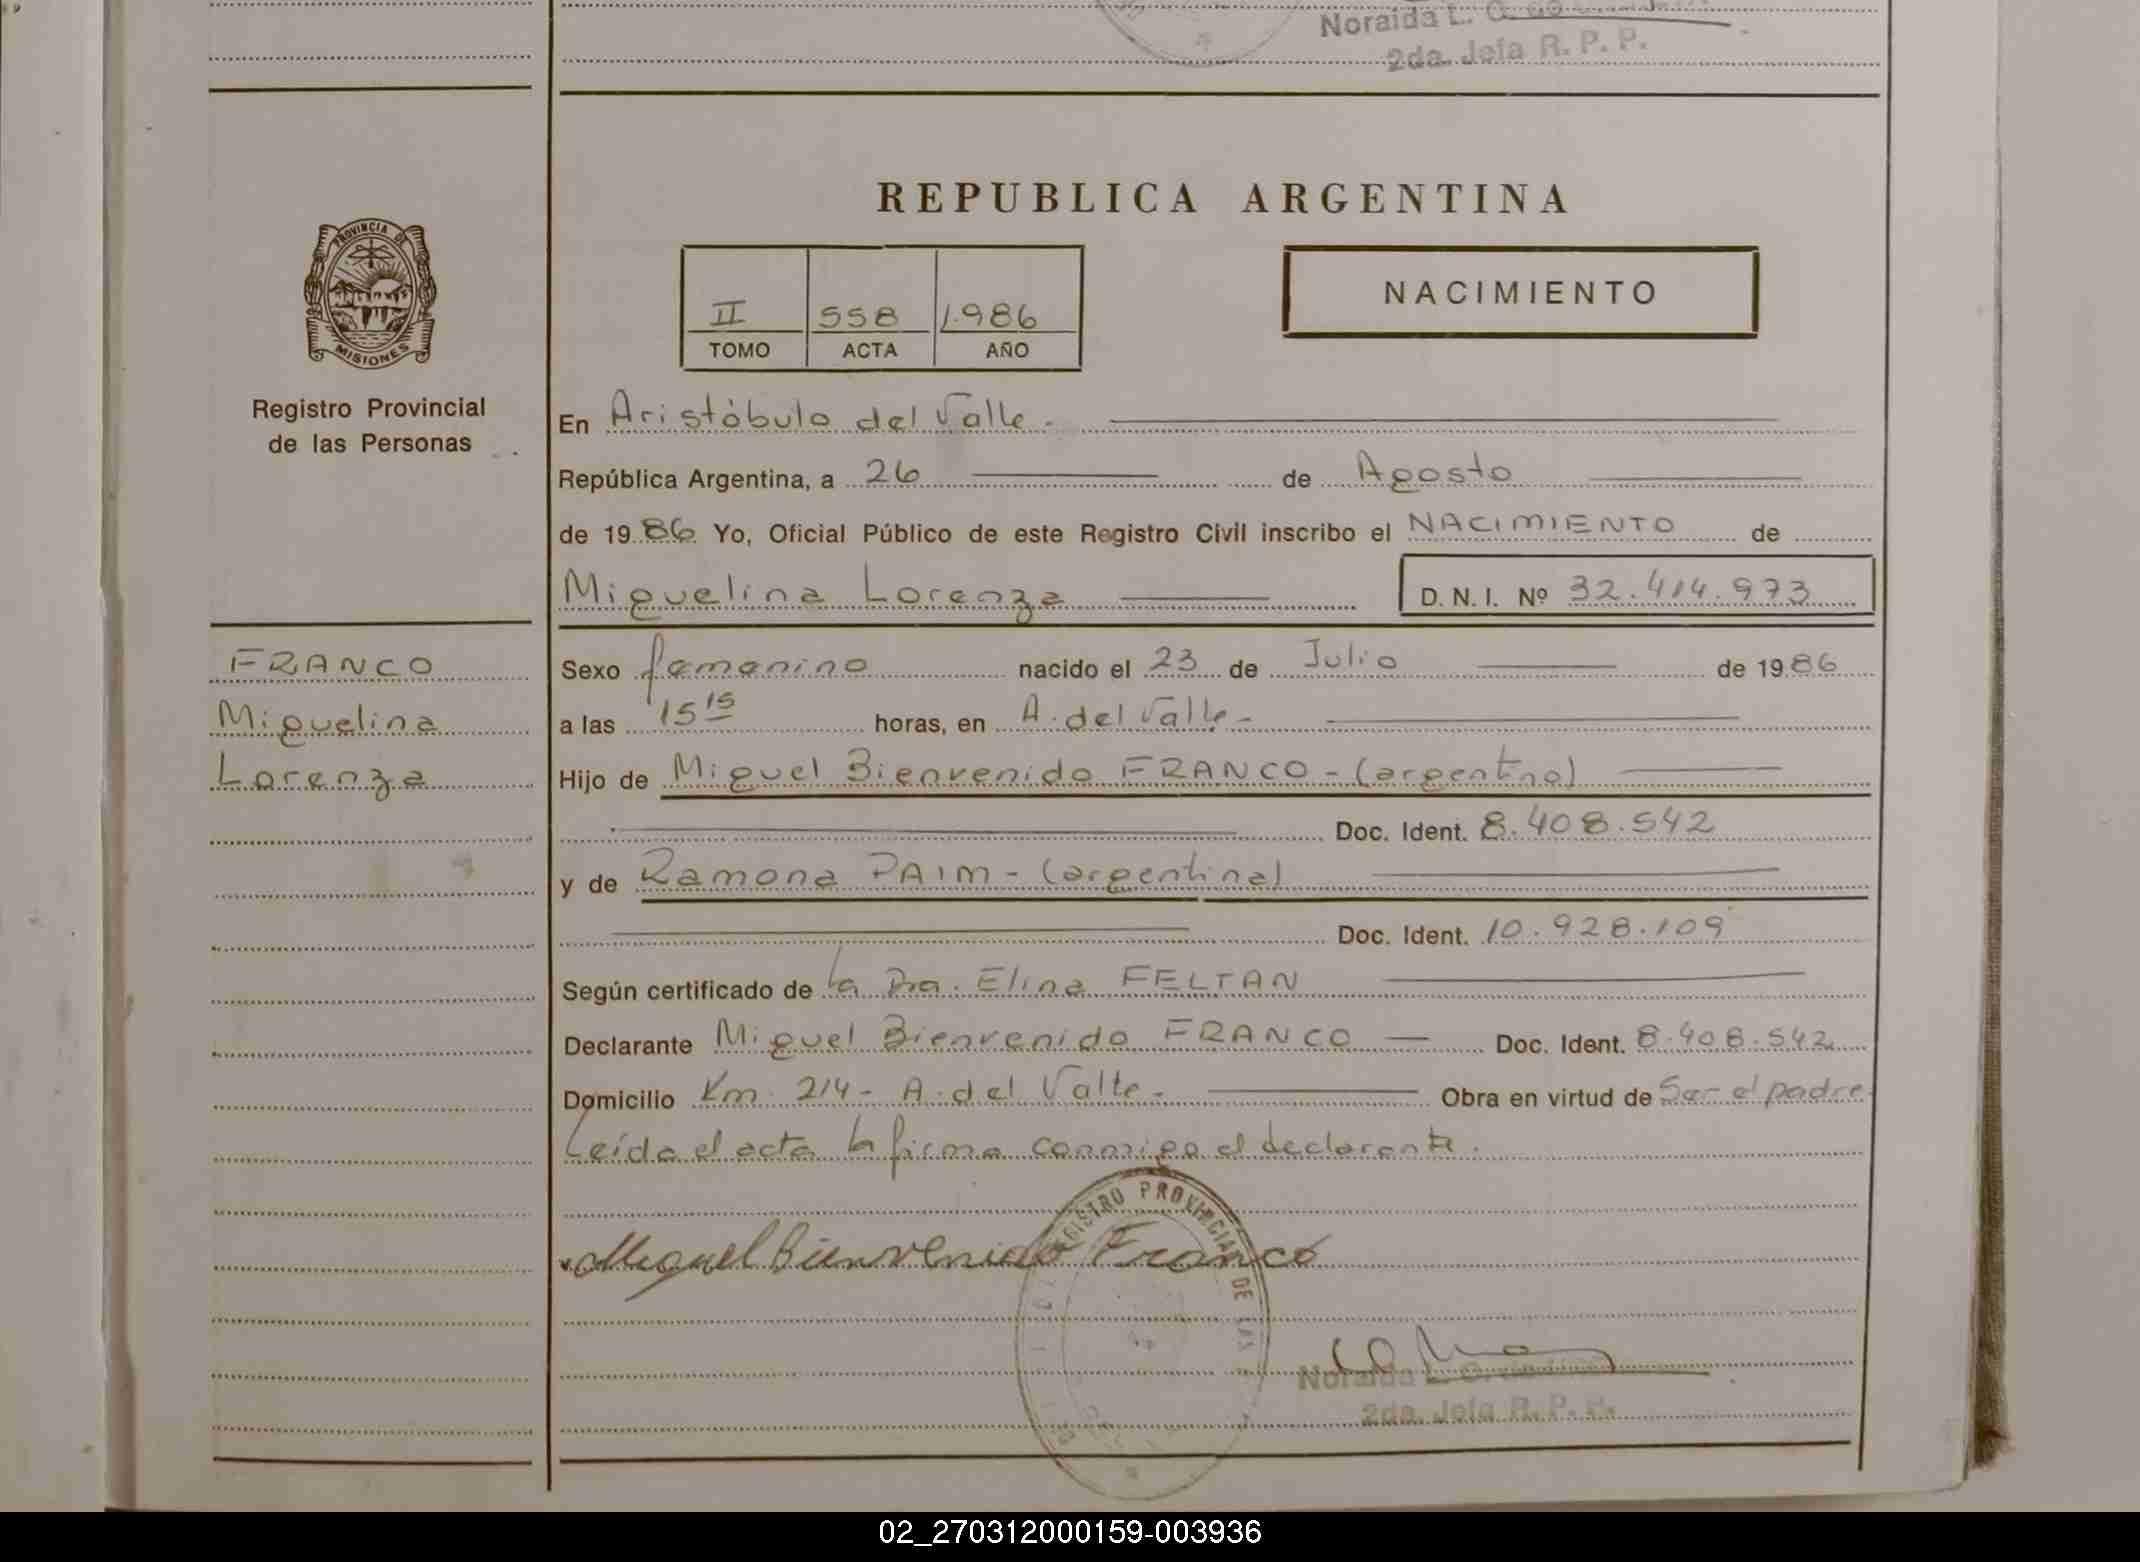 Noraida L.
2da. Jefa R. P. P.
REPUBLICA ARGENTINA
PROVINCIA DE
MISIONES
II 558 1.986
TOMO ACTA AÑO
NACIMIENTO
Registro Provincial
de las Personas
En Aristóbulo del Valle.-
República Argentina, a 26 de Agosto
de 1986 Yo, Oficial Público de este Registro Civil inscribo el NACIMIENTO de
Miguelina Lorenza D.N.I. Nº 32.414.973
FRANCO
Miguelina
Lorenza
Sexo femenino nacido el 23 de Julio de 1986
a las 15 15 horas, en A. del Valle-
Hijo de Miguel Bienvenido FRANCO - (argentino)
Doc. Ident. 8.408.542
y de Ramona PAIM - (argentina)
Doc. Ident. 10.928.109
Según certificado de la Dra. Elina FELTAN
Declarante Miguel Bienvenido FRANCO Doc. Ident. 8.408.542
Domicilio Km. 214 - A. del Valle.- Obra en virtud de Ser el padre.
Leída el acta la firma conmigo el declarante.
Miguel Bienvenido Franco
REGISTRO PROVINCIAL DE LAS
Noraida L.
2da. Jefa R. P. P.
02_270312000159-003936